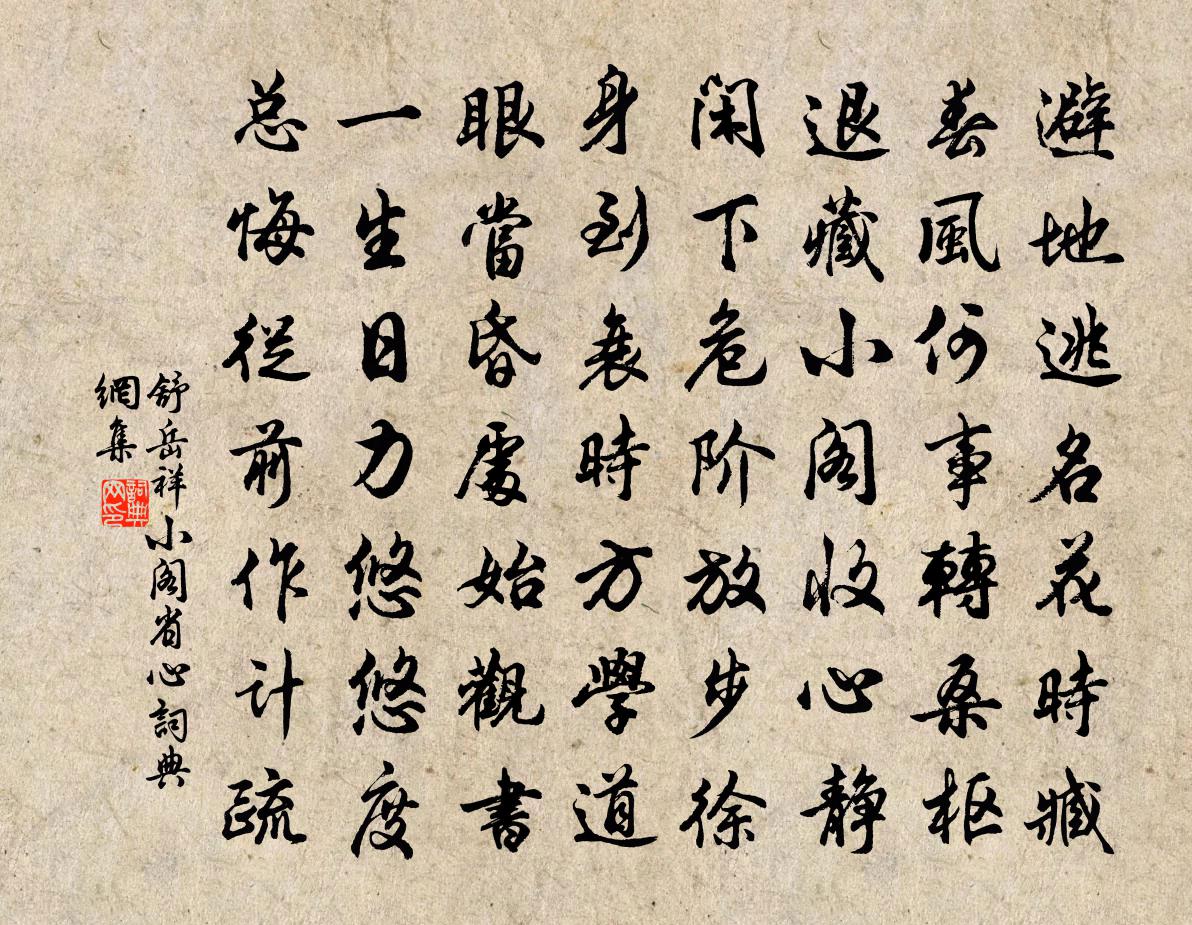 避地逃名花時臧
春風何事轉桑枢
退藏小阁收心静
闲下危阶放步徐
身到衰時方學道
眼當昏處始觀書
一生日力悠悠度
总悔從前作计疏
舒岳祥小阁省心詞典
網集
詞典
网印